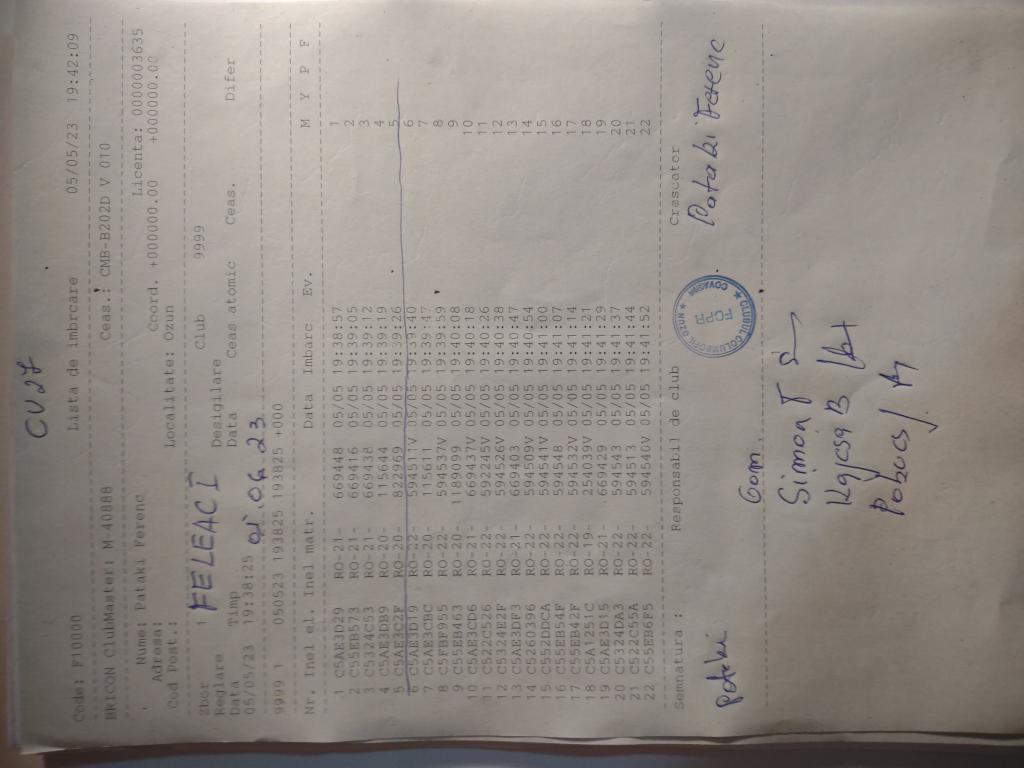 CU27
Code: F10000 Lista de imbrcare 05/05/23 19:42:09
BRICON ClubMaster: M-40888 Ceas.: CMB-B202D V 010
Nume: Pataki Ferenc Licenta: 0000003635
Adresa: Coord. +000000.00 +0000000.00
Cod Post.: Localitate: Ozun
Zbor 1 FELEAC I Club 9999
Reglare Desigilare
Data Timp Data Ceas atomic Ceas. Difer
05/05/23 19:38:25 01.06.23
9999 1 050523 193825 193825 +000
Nr. Inel el. Inel matr. Data Imbarc Ev. M Y P F
1 C5AE3D29 RO-21- 669448 05/05 19:38:57 1
2 C55EB573 RO-21- 669416 05/05 19:39:05 2
3 C5324C53 RO-21- 669438 05/05 19:39:12 3
4 C5AE3DB9 RO-20- 115644 05/05 19:39:19 4
5 C5AE3C2F RO-20- 822969 05/05 19:39:26 5
6 C5AE3D19 RO-22- 594511V 05/05 19:39:40 6
7 C5AE3CBC RO-20- 115611 05/05 19:39:47 7
8 C5FBF955 RO-22- 594537V 05/05 19:39:59 8
9 C55EB463 RO-20- 1189099 05/05 19:40:08 9
10 C5AE3CD6 RO-21- 669437V 05/05 19:40:18 10
11 C522C526 RO-22- 592245V 05/05 19:40:26 11
12 C5324E2F RO-22- 594526V 05/05 19:40:38 12
13 C5AE3DF3 RO-21- 669403 05/05 19:40:47 13
14 C5260396 RO-22- 594509V 05/05 19:40:54 14
15 C552DDCA RO-22- 594541V 05/05 19:41:00 15
16 C55EB54F RO-22- 594548 05/05 19:41:07 16
17 C55EB42F RO-22- 594532V 05/05 19:41:14 17
18 C5A1251C RO-19- 254099V 05/05 19:41:21 18
19 C5AE3D15 RO-21- 669429 05/05 19:41:29 19
20 C5324DA3 RO-22- 594543 05/05 19:41:37 20
21 C522C55A RO-22- 594513 05/05 19:41:44 21
22 C55EB6F5 RO-22- 594540V 05/05 19:41:52 22
Semnatura : Responsabil de club Crescator
Pataki Pataki Ferenc
CLUBUL COLUMBOFIL OZUN COVASNA
FCPR
Com.
Simon